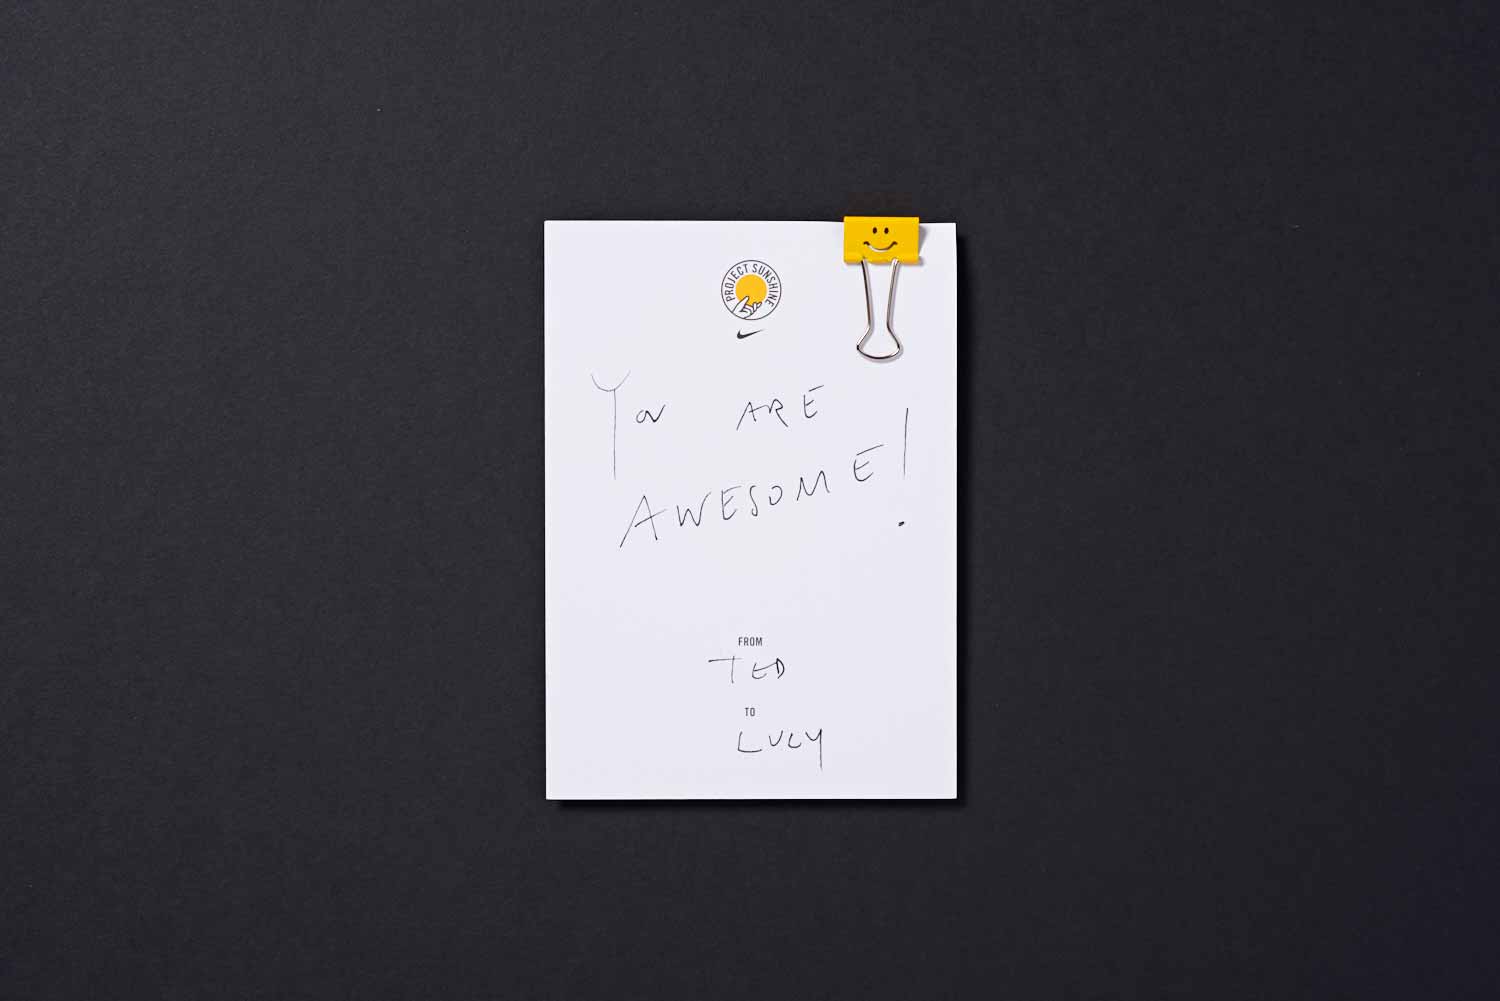 PROJECT SUNSHINE
You ARE
AWESOME!
FROM
TED
TO
LUCY